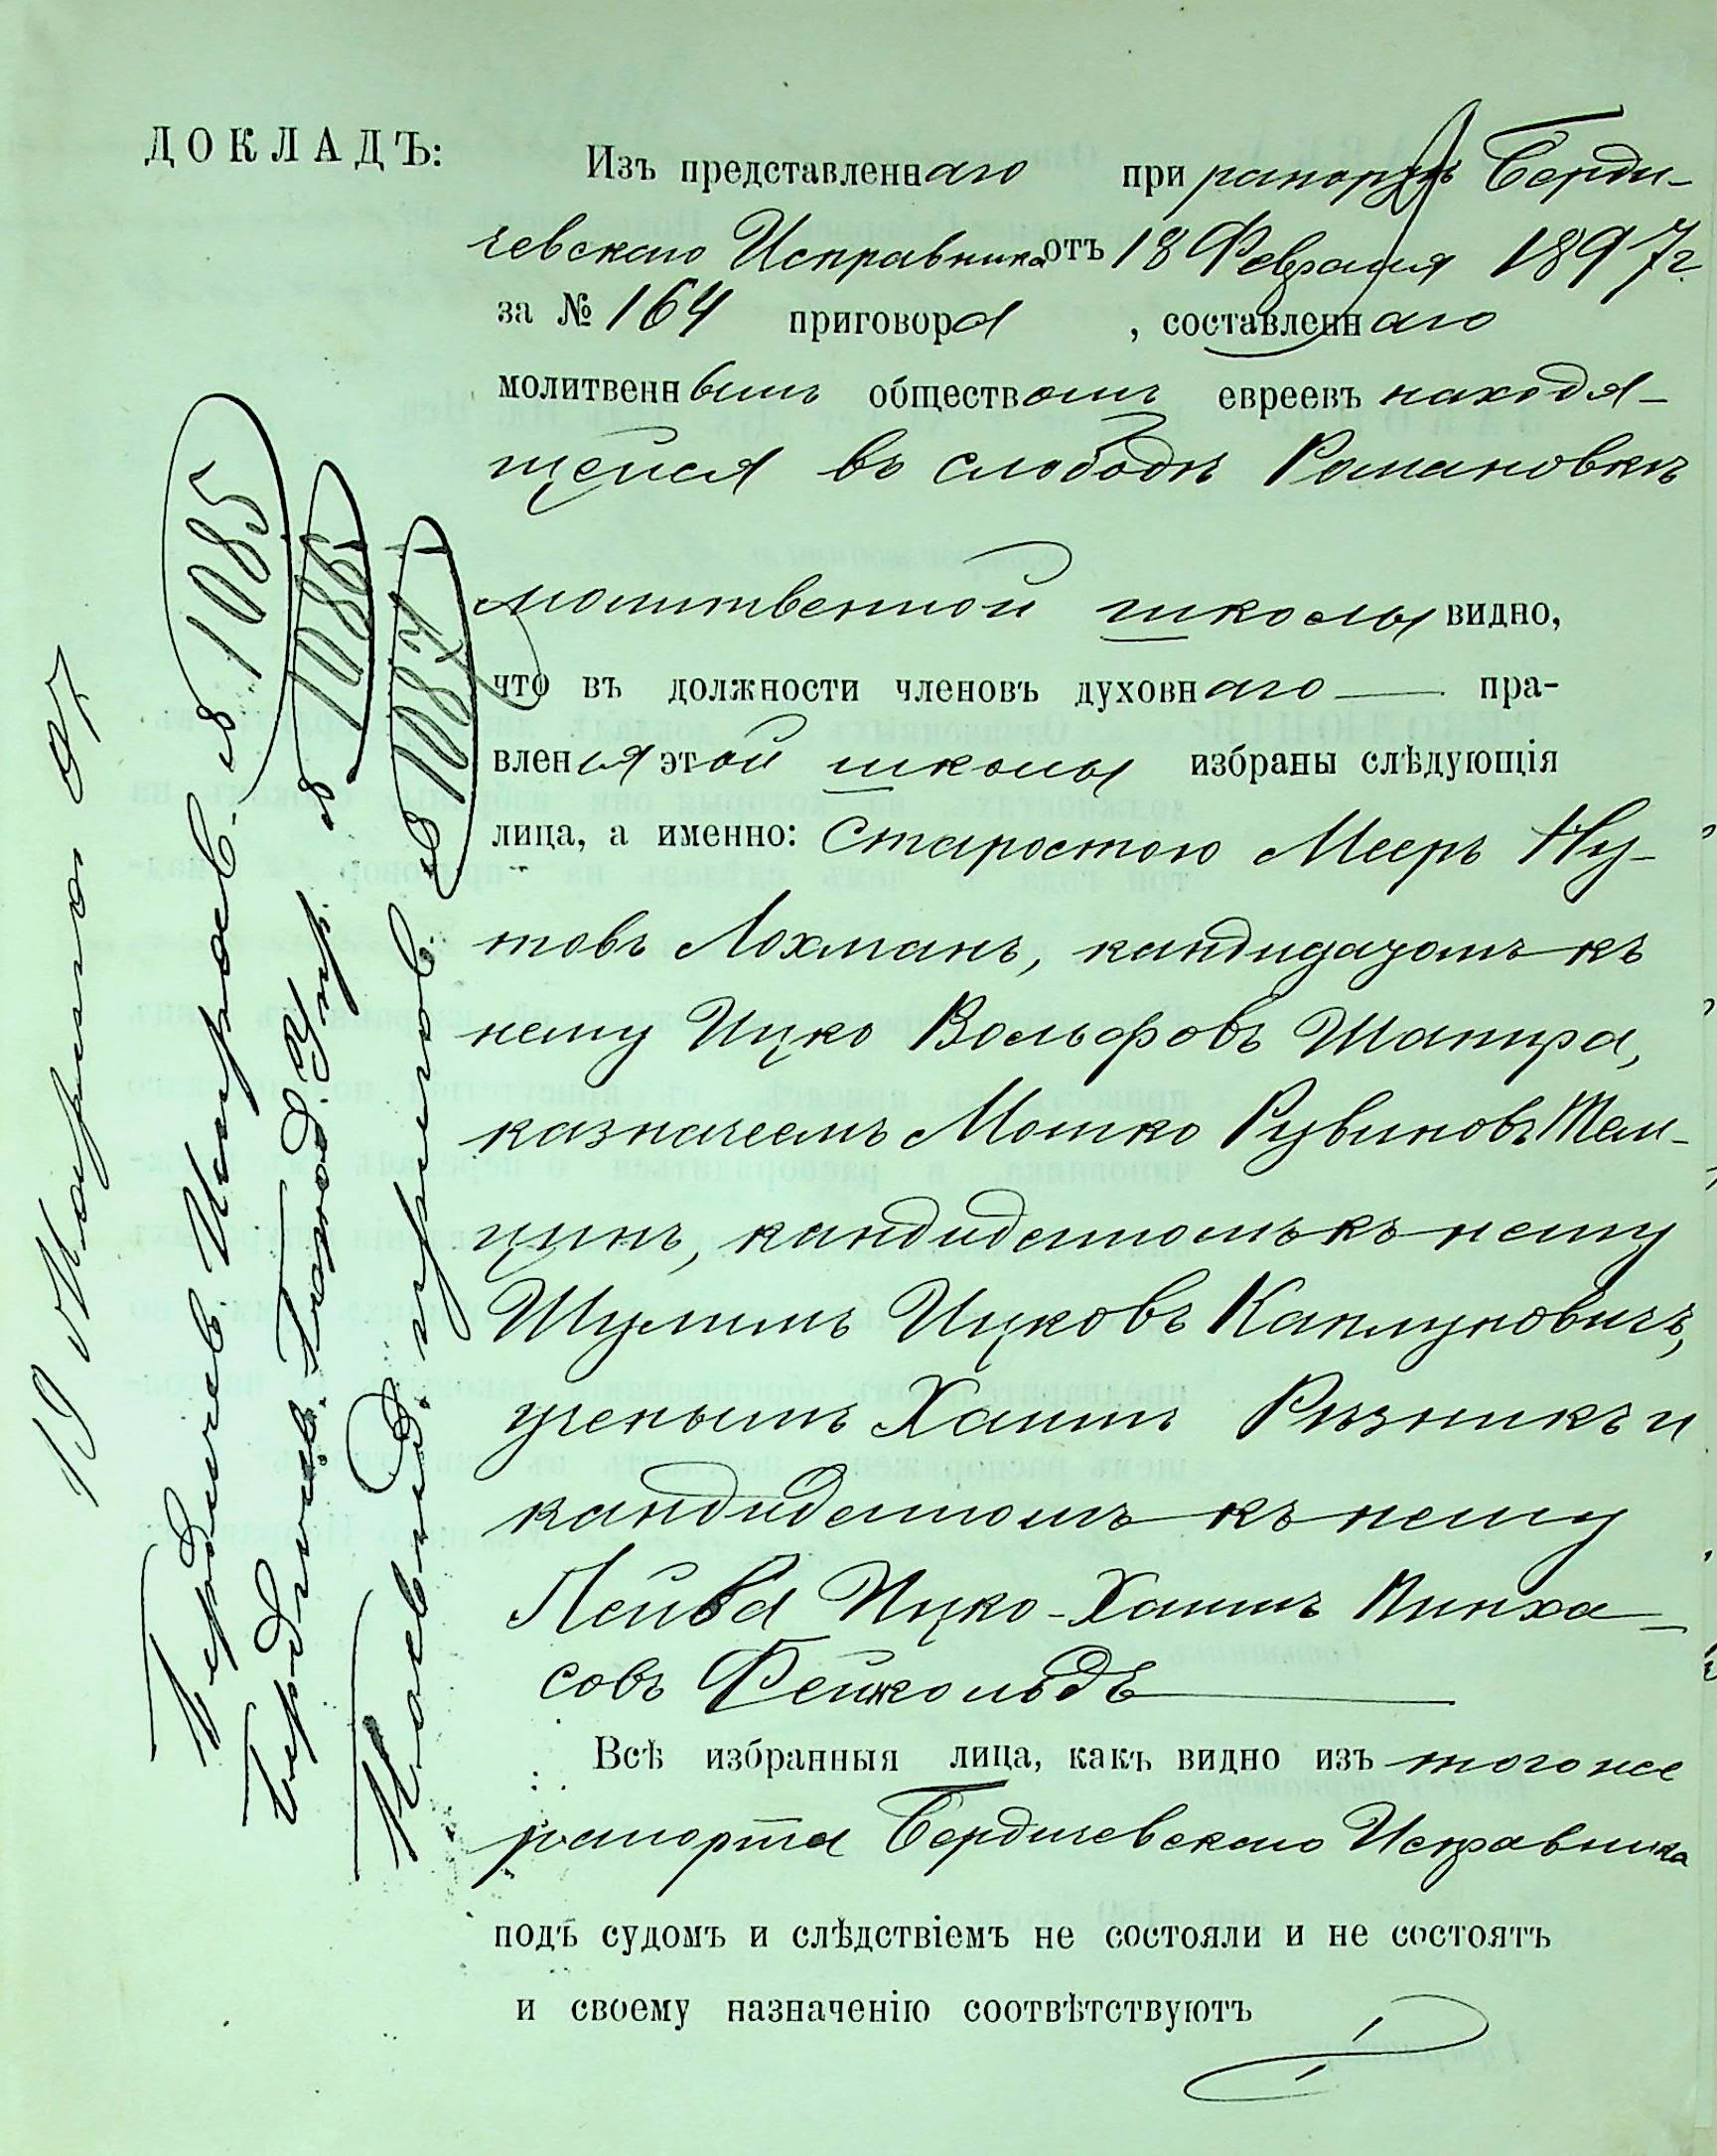 ДОКЛАДЪ:
Изъ представленнаго при рапортѣ Берди-
чевскаго Исправника отъ 18 Февраля 1897 г.
за № 164 приговора, составленнаго
молитвеннымъ обществомъ евреевъ находя-
щейся въ слободѣ Романовкѣ
молитвенной школы видно,
что въ должности членовъ духовнаго — пра-
вленія этой школы избраны слѣдующія
лица, а именно: Старостою Мееръ Ну-
товъ Лохманъ, кандидатомъ къ
нему Ицко Вольфовъ Шапира,
казначеемъ Мошко Рувиновъ
цинъ, кандидатомъ къ нему
Шулимъ Ицковъ Каплуновичъ,
ученымъ Хаимъ Рѣзникъ и
кандидатомъ къ нему
Лейба Ицко-Хаимъ Пинха-
совъ Фейнгольдъ
Всѣ избранныя лица, какъ видно изъ того же
рапорта Бердичевскаго Исправника
подъ судомъ и слѣдствіемъ не состояли и не состоятъ
и своему назначенію соотвѣтствуютъ
19 Марта 97
Бердичев. Исправ. № 1085
Бердичев. Город. Упр. № 1086
Кіевскій № 1087